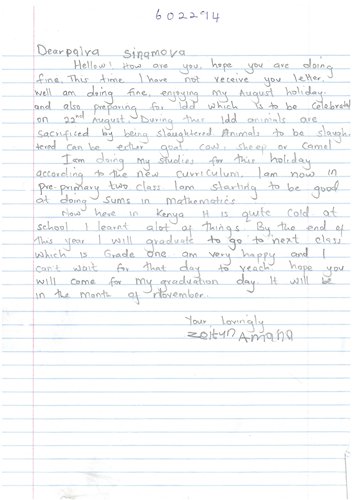 602274
Dear palva Sinamova
Hellow! How are you. hope you are doing
fine. This time I have not receive you letter.
well am doing fine, enjoying my August holiday.
and also preparing for Idd which is to be celebrated
on 22nd August. During this Idd animals are
sacrificed by being slaughtered Animals to be slaugh-
tered can be either goat, cow, sheep or camel
I am doing my studies for this holiday
according to the new curriculum. I am now in
pre-primary two class I am starting to be good
at doing sums in mathematics
Now here in Kenya it is quite cold at
school I learnt alot of things. By the end of
this year I will graduate to go to next class
which is Grade one am very happy and I
can't wait for that day to reach. hope you
will come for my graduation day. It will be
in the month of November.
Your Lovingly
Zeitun Amana